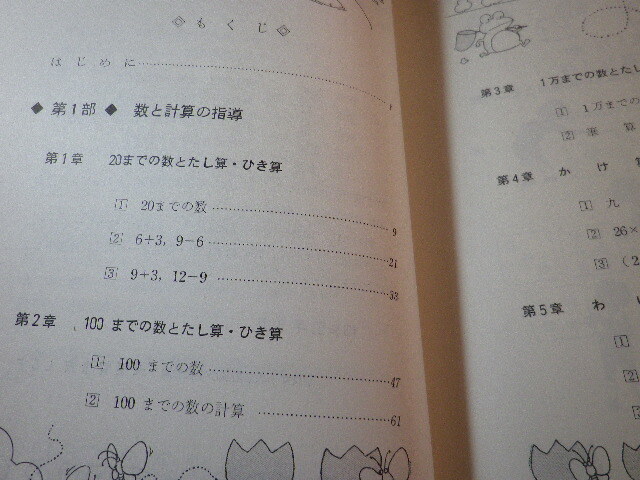 ◇もくじ◇
はじめに 1
◆ 第1部 ◆ 数と計算の指導
第1章 20までの数とたし算・ひき算
1 20までの数 9
2 6+3, 9−6 21
3 9+3, 12−9 33
第2章 100 までの数とたし算・ひき算
1 100 までの数 47
2 100 までの数の計算 61
第3章 1万までの数とたし
1 1万までの
2 筆算
第4章 かけ
1 九
2 26×
3 (2
第5章 わ
1
2